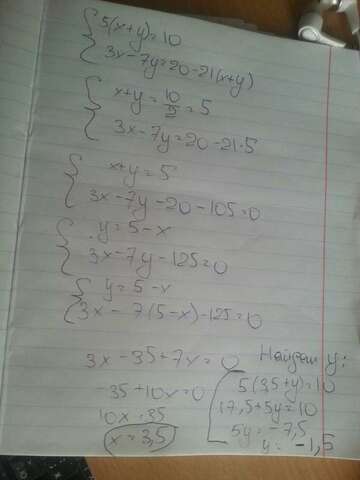 5(x+y)=10
3x-7y=20-21(x+y)
x+y=10/2=5
3x-7y=20-21·5
x+y=5
3x-7y-20-105=0
y=5-x
3x-7y-125=0
y=5-x
3x-7(5-x)-125=0
3x-35+7x=0
-35+10x=0
10x=35
x=3,5
Найдем y:
5(3,5+y)=10
17,5+5y=10
5y=-7,5
y=-1,5